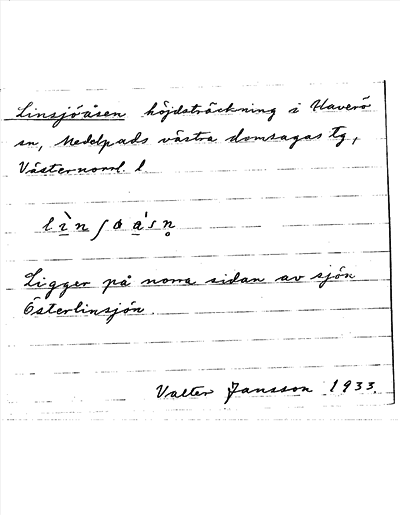 Linsjöåsen höjdsträckning i Haverö
sn, Medelpads västra domsagas tg,
Västernorrl. l.
lìnʃo ásn̥
Ligger på norra sidan av sjön
Österlinsjön.
Valter Jansson 1933.